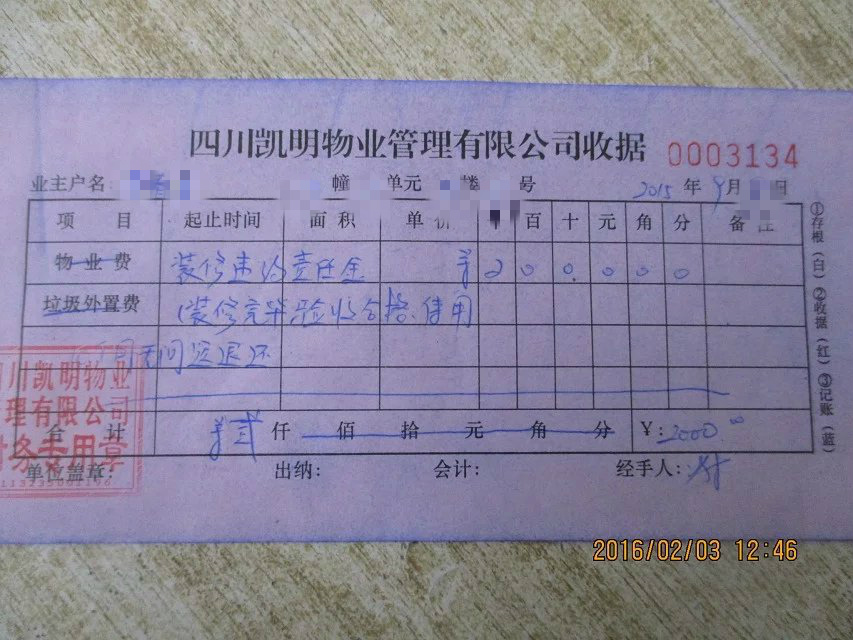 四川凯明物业管理有限公司收据 0003134
业主户名 幢 单元 楼 号 2015 年 9 月 日
项目 起止时间 面积 单价 千 百 十 元 角 分 备注
物业费 装修违约责任金 ¥ 2 0 0 0 0 0
垃圾外置费 (装修完毕验收合格,使用
无问题退还
合计 ¥贰 仟 佰 拾 元 角 分 ¥:2000.00
单位盖章: 出纳: 会计: 经手人:
①存根(白)②收据(红)③记账(蓝)
四川凯明物业
管理有限公司
财务专用章
2016/02/03 12:46